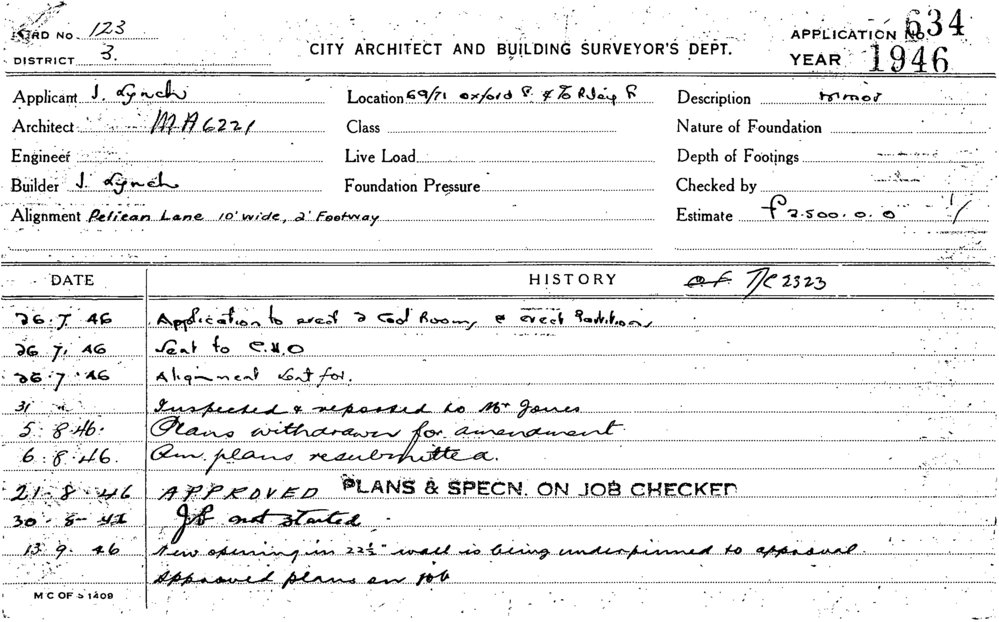 CARD No. 123
DISTRICT 3.
CITY ARCHITECT AND BUILDING SURVEYOR'S DEPT.
APPLICATION No. 634
YEAR 1946
Applicant J. Lynch
Location 69/71 Oxford
Description minor
Architect MA6221
Class
Nature of Foundation
Engineer
Live Load
Depth of Footings
Builder J. Lynch
Foundation Pressure
Checked by
Alignment Pelican Lane 10' wide, 2' Footway
Estimate £2.500.0.0
DATE HISTORY T/C 2323
26.7.46 Application to erect 2 Cool Rooms & erect Partitions
26.7.46 Sent to C.H.O
26.7.46 Alignment Sent for.
31 " Inspected & reported to Mr Jones
5.8.46. Plans withdrawn for amendment
6.8.46. Am. plans resubmitted.
21.8.46 APPROVED PLANS & SPECN. ON JOB CHECKED
30.8. Job not started.
13.9.46 New opening in 22½" wall is being underpinned to approval.
Approved plans on job
M C OF S 1409